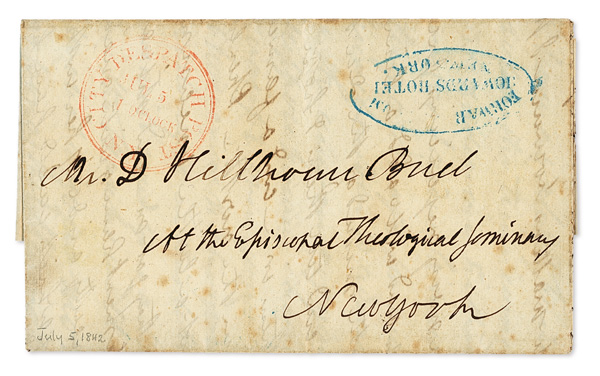 CITY DESPATCH POST
JUL 5
O'CLOCK
FORWAR
HOWARDS HOTEL
NEW YORK.
Mr. D Hillhouse Buel
At the Episcopal Theological Seminary
New York
July 5, 1842